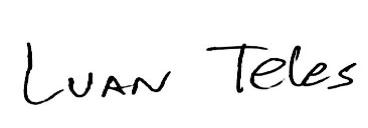 Luan Teles